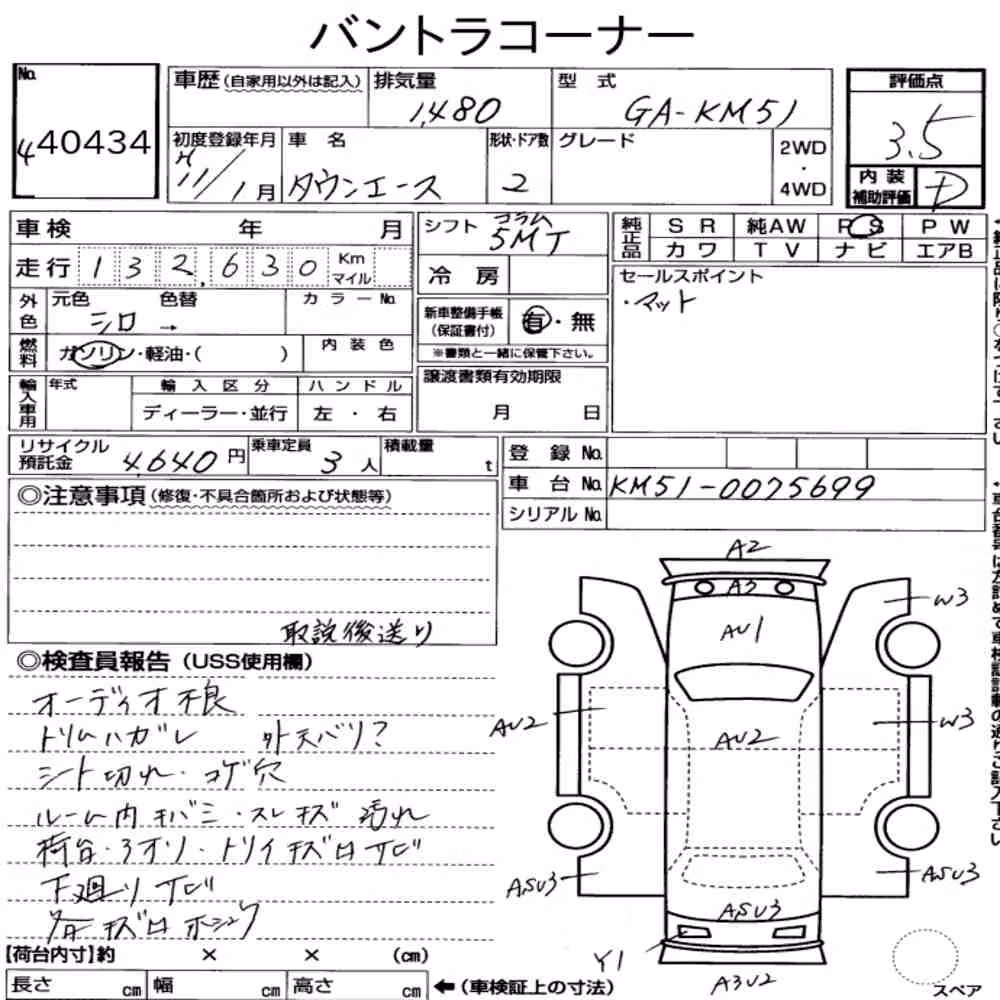 バントラコーナー
No. 440434
車歴 (自家用以外は記入)
排気量 1,480
型 式 GA-KM51
評価点 3.5
内装補助評価 D
初度登録年月 H 11/1月
車 名 タウンエース
形状・ドア数 2
グレード
2WD・4WD
車検 年 月
走行 132,630 Km マイル
シフト コラム 5MT
冷 房
純正品 SR 純AW PS PW
カワ TV ナビ エアB
セールスポイント
・マット
外色 元色 シロ → 色替 カラーNo.
燃料 ガソリン・軽油・( ) 内装色
新車整備手帳(保証書付) 有・無
※書類と一緒に保管下さい。
輸入車用 年式 輸入区分 ハンドル
ディーラー・並行 左・右
譲渡書類有効期限
月 日
リサイクル預託金 4,640円
乗車定員 3人
積載量 t
登 録 No.
車 台 No. KM51-0075699
シリアル No.
◎注意事項 (修復・不具合箇所および状態等)
取説後送り
◎検査員報告 (USS使用欄)
オーディオ不良
トリムハガレ 外天バリ?
シート切れ・コゲ穴
ルーム内キバミ・スレキズ 汚れ
荷台・3オリ・トリイキズロサビ
下廻りサビ
各キズロ
【荷台内寸】約 × × (cm)
長さ cm 幅 cm 高さ cm ←(車検証上の寸法)
A2
A3
W3
AU1
AU2
AU2
W3
ASU3
ASU3
ASU3
Y1
A3U2
スペア